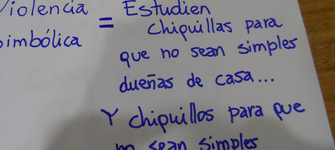 Violencia = Estudien
simbólica chiquillas para
que no sean simples
dueñas de casa...
Y chiquillos para que
no sean simples